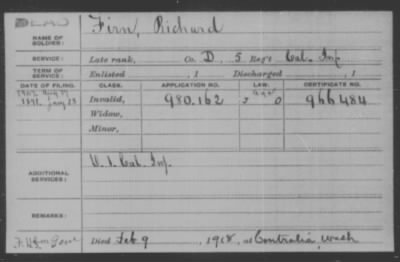 DEAD
NAME OF SOLDIER: Firn, Richard
SERVICE: Late rank, Co. D, 5 Reg't Cal. Inf
TERM OF SERVICE: Enlisted , 1 Discharged , 1
DATE OF FILING. CLASS. APPLICATION NO. LAW. CERTIFICATE NO.
1891. Invalid, 980.162 966484
Widow,
Minor,
ADDITIONAL SERVICES: Cal. Inf.
REMARKS:
Died Feb 9, 1918, at Centralia, Wash